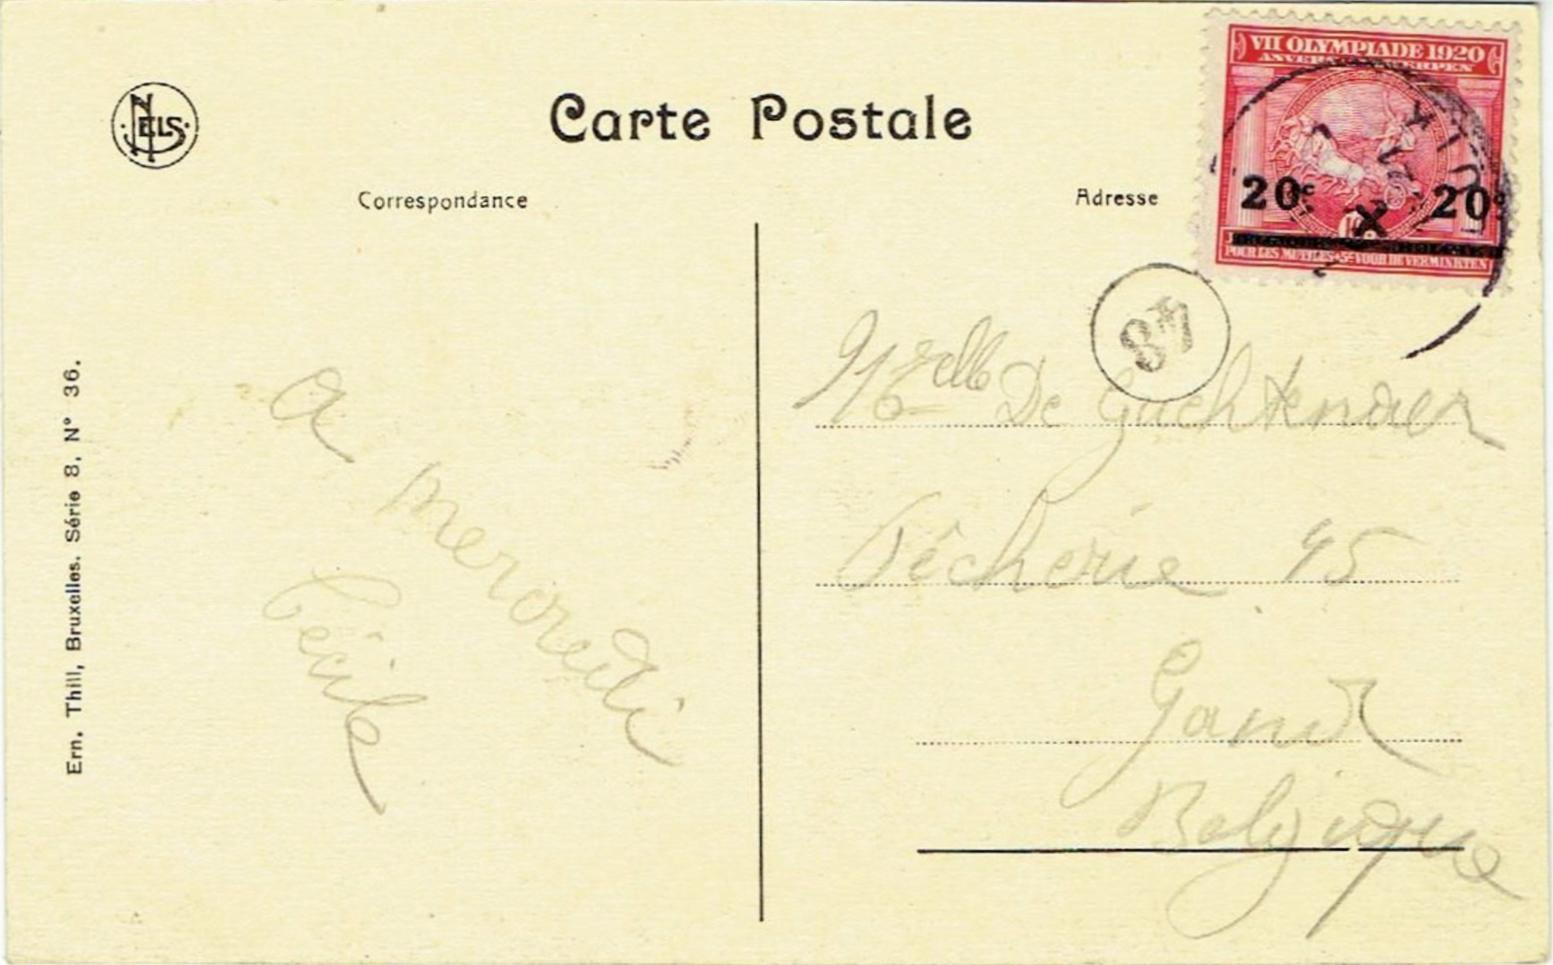 NELS
Carte Postale
Correspondance
Adresse
VII OLYMPIADE 1920
ANVERS ANTWERPEN
20c 20c
POUR LES MUTILES+5c VOOR DE VERMINKTEN
48
Melle De Gachtenaer
Pêcherie 95
Gand
Belgique
a mercredi
Cécile
Ern. Thill, Bruxelles. Série 8, N° 36.